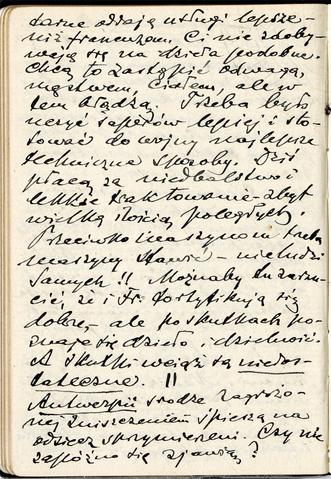 darne oddają usługi lepsze
niż francuzom. Ci nie zdoby-
wają się na dzieła podobne.
Chcą to zastąpić odwagą,
męstwem, ciałem, ale w
tem błądzą. Trzeba było
uczyć saperów lepiej i sto-
sować do wojny najlepsze
techniczne sposoby. Dziś
płacą za niedbalstwo i
lekkie traktowanie - zbyt
wielką ilością poległych.
Przeciwko maszynom trzeba
maszyny stawić - nie ludzi
samych!! Możnaby tu zarzu-
cić, że i fr. fortyfikują się
dobrze, ale po skutkach po-
znaje się dzieło i dzielność.
A skutki wciąż są niedos-
tateczne. !!
Antwerpii srodze zagrożo-
nej zniszczeniem śpieszą na
odsiecz sprzymierzeni. Czy nie
zapóźno się zjawią?